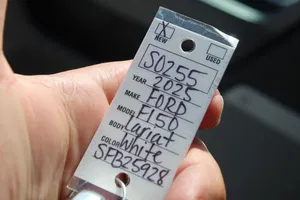 X
NEW
USED
S0255
YEAR 2025
MAKE FORD
MODEL F150
BODY Lariat
COLOR White
SFB25928